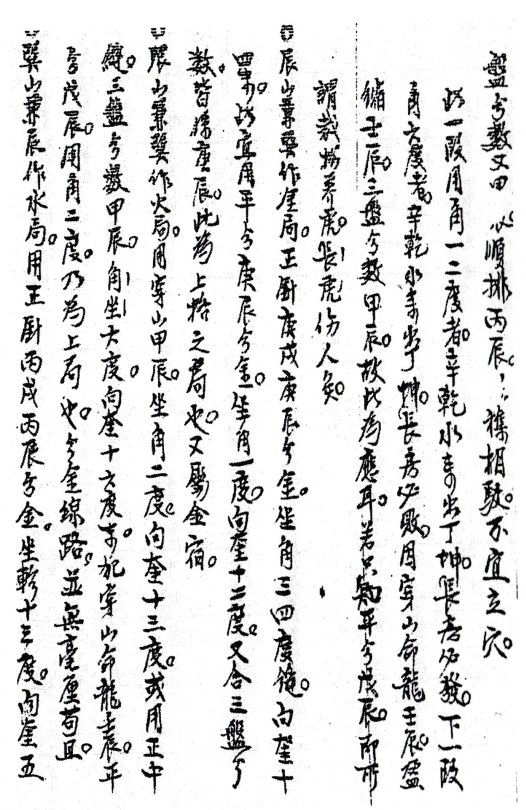 盤分數又甲 以順排丙辰 雜相駁不宜立穴
此一段用角一二度者辛乾水來出丁坤長房必發下一段
角六度者辛乾水來出丁坤長房必敗因穿山命龍壬辰盈
縮壬辰三盤分數甲辰故此為應耳若只知平分戊辰即所
謂裁捕養虎張虎傷人矣
辰山兼巽作準局正針庚戌庚辰分金坐角三四度縫向奎十
四 此宜用平分庚辰分金坐角一度向奎十二度又合三盤分
數皆係庚辰此為上格之局也又屬金宿
辰山兼巽作火局用穿山甲辰坐角二度向奎十三度或用正中
縫三盤分數甲辰角坐六度向奎十六度 犯穿山命龍壬辰平
分戊辰用角二度乃為上局也分金線路並無毫厘苟且
巽山兼辰作水局用正針丙戌丙辰分金坐軫十三度向奎五